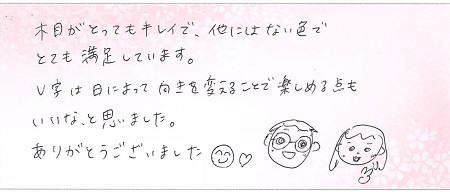 木目がとってもキレイで、他にはない色で
とても満足しています。
V字は日によって向きを変えることで楽しめる点も
いいな、と思いました。
ありがとうございました